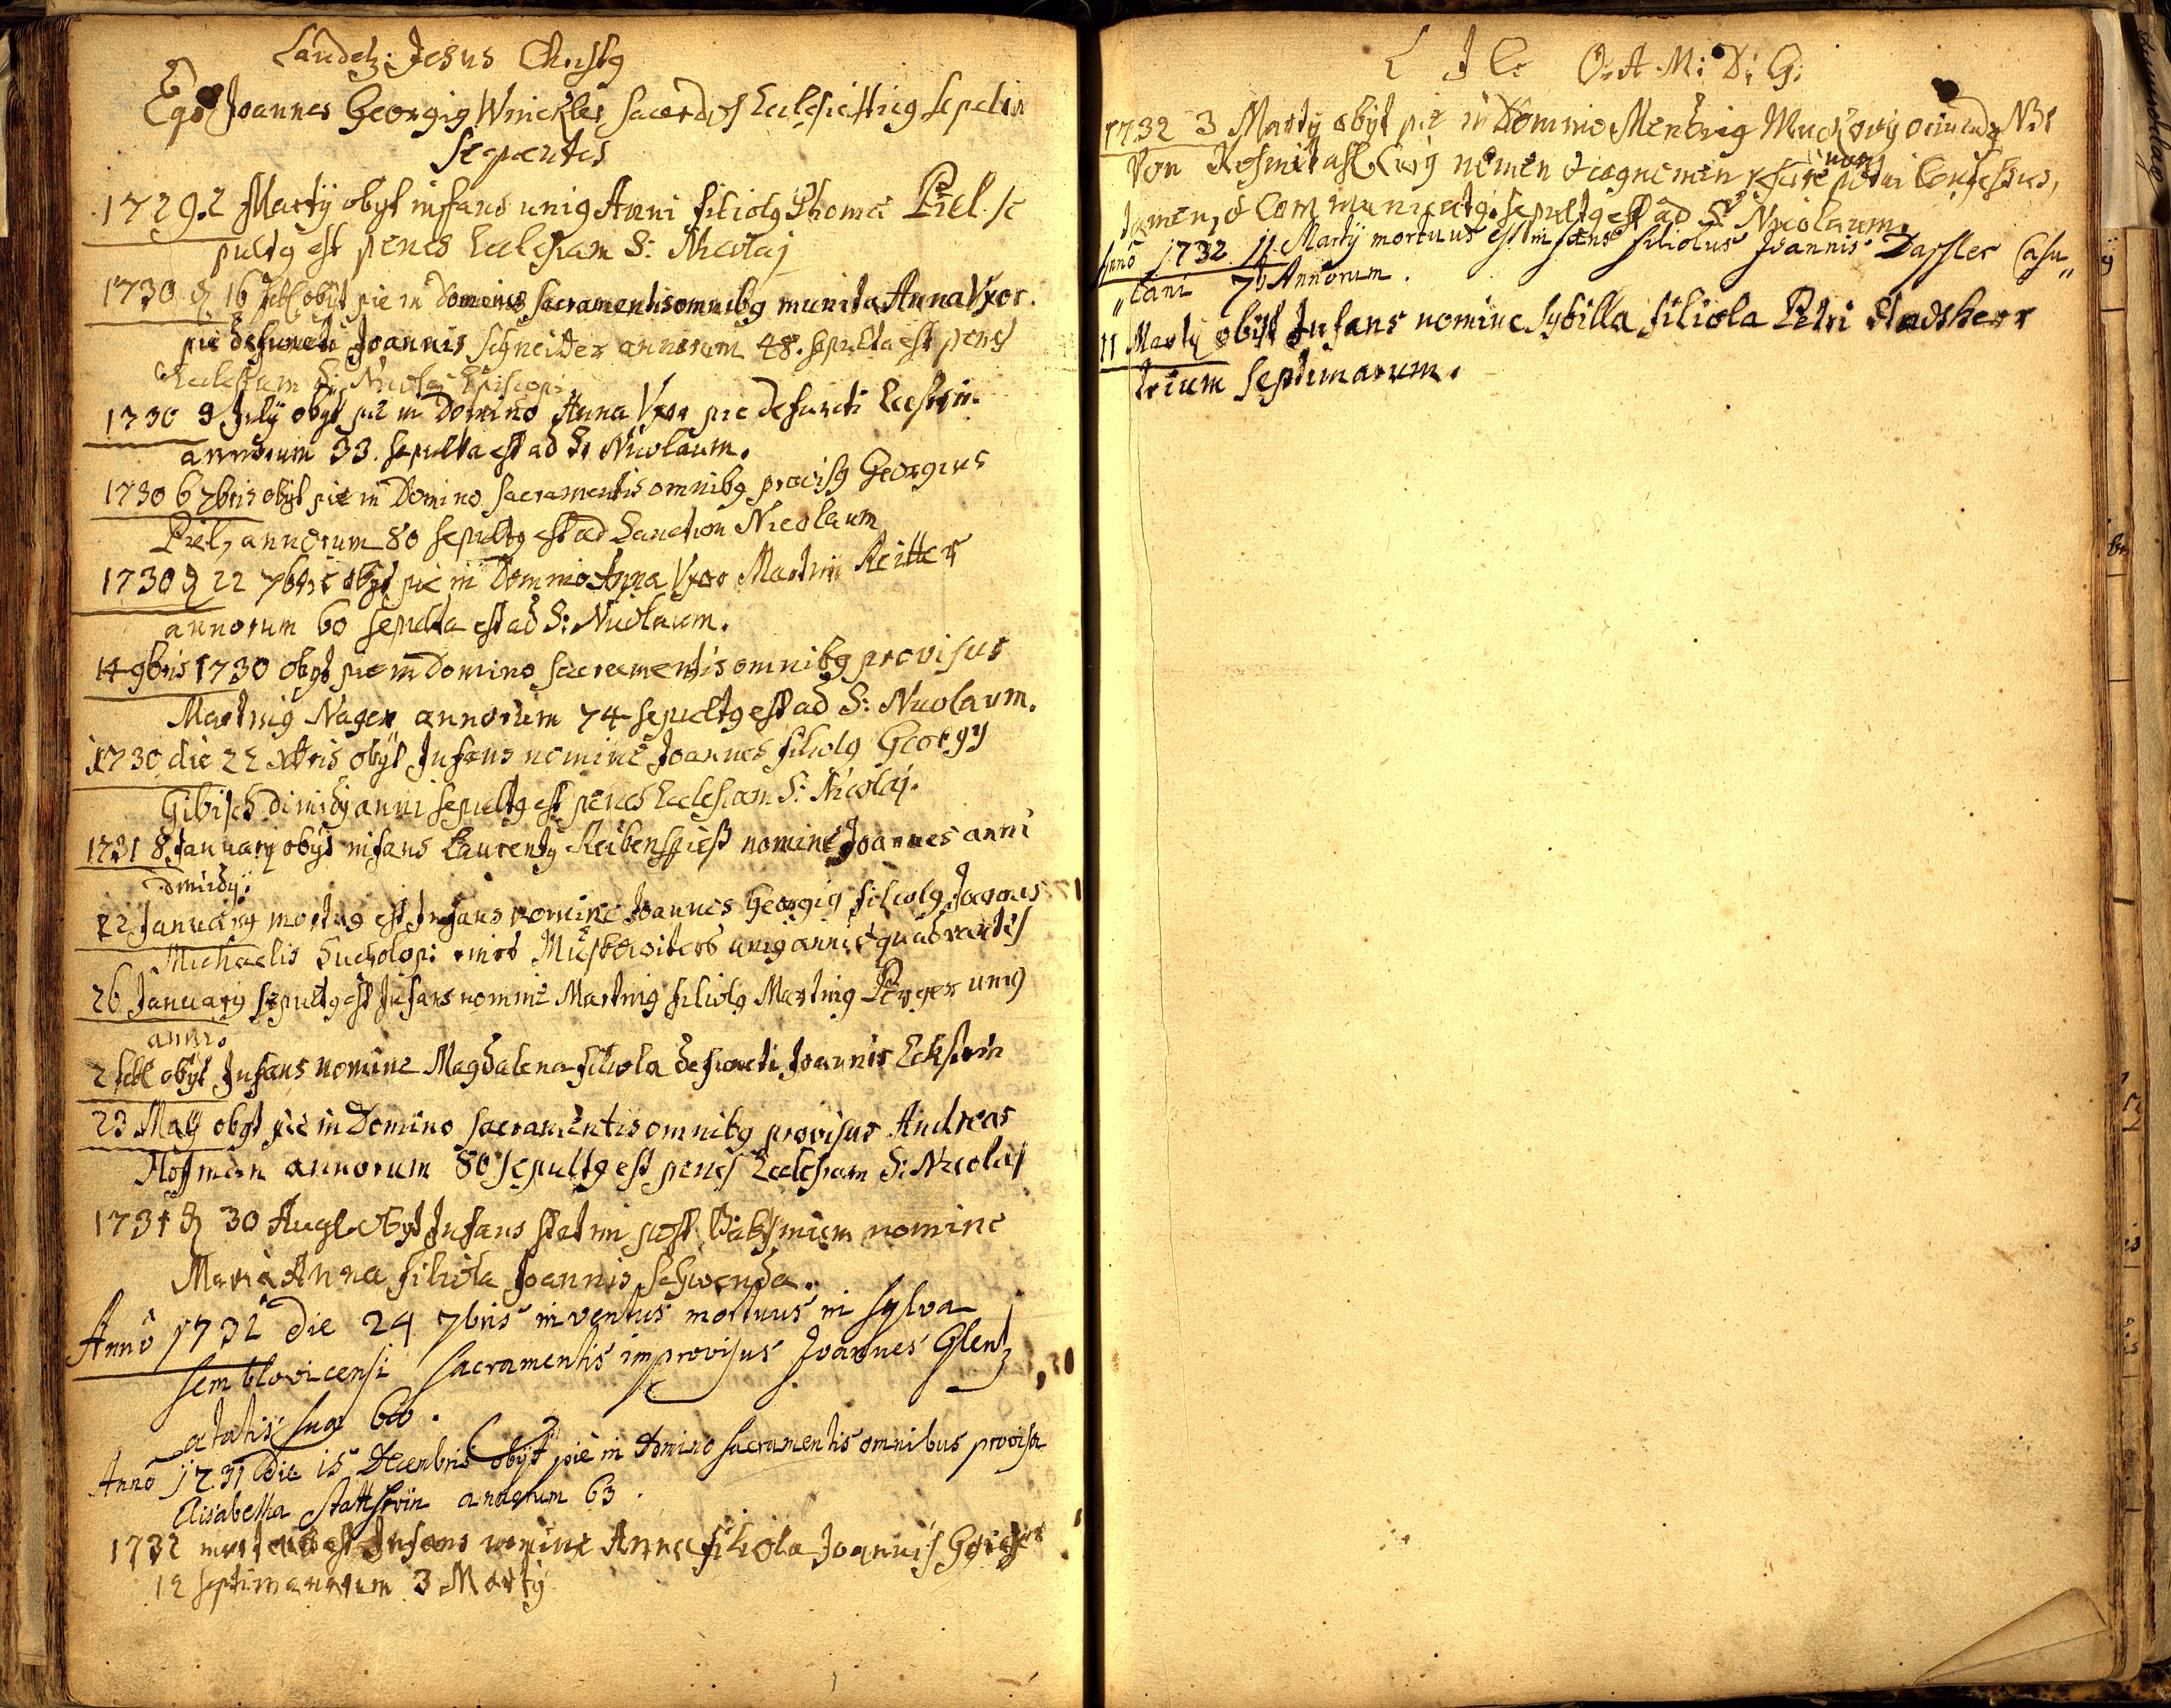 Laudetr Jesus Christg
Ego Joannes Georgig Winckler sacerdos Ecclesiasticg sepelivi
sequentes
1729. 2 Martÿ obÿt infans unig Anni filiolg Thomæ Piel. se
pultg est penes Ecclesiam S: Nicolaj
1730 d 16 Feb obÿt pie in Domino sacramentis omnibg munita Anna Vxor.
pie defuncti Joannis Schneider annorum 48. sepulta est penes
Ecclesiam S: Nicolaj Episcopi
1730 9 Julÿ obÿt pie in Domino Anna Vxor pie defuncti Eckstein
annorum 33. sepulta est ad S: Nicolaum.
1730 6 7bris obÿt pie in Domino sacramentis omnibg provisg Georgius
Piel, annorum 80 sepultg est ad Sanctum Nicolaum
1730 d 22 7bris obÿt pie in Domino Anna Vxor Martini Reitter
annorum 60 sepulta est ad S: Nicolaum.
14 9bris 1730 obÿt pie in Domino sacramentis omnibg provisus
Martinig Nager annorum 74 sepultg est ad S: Nicolaum.
1730 die 22 Xbris obÿt Infans nomine Joannes filiolg Georgÿ
Gibisch dimidÿ anni sepultg est penes Ecclesiam S: Nicolaj.
1731 8 Januarÿ obÿt infans Laurentÿ Reibenspieß nomine Joannes anni
dimidÿ.
22 Januarÿ mortug est Infans nomine Joannes Georgig filiolg Joannis
Michaelis unig anni et quadrantis
26 Januarÿ sepultg est Infans nomine Martinig filiolg Martinig Perger unig
anni.
2 Feb obÿt Infans nomine Magdalena filiola defuncti Joannis Eckstein
23 Maÿ obÿt pie in Domino sacramentis omnibg provisus Andreas
Hoffman annorum 80 sepultg est penes Ecclesiam S: Nicolaj
1731 d 30 Aug obÿt Infans statim post Baptismum nomine
Maria Anna filiola Joannis Schwenda.
Annô 1731 die 24 7bris inventus mortuus in sylva
semblovicensi sacramentis improvisus Joannes Glentz
ætatis suæ 60.
Annô 1731 die 15 Decembris obÿt pie in Domino sacramentis omnibus provisa
Elisabetha annorum 63.
1732 est Infans nomine Anna filiola Joannis
12 septimanarum 3 Martÿ
L J C: O: A: M: D: G:
1732 3 Martÿ obÿt pie in Domino
Von nomen et cognomen scire non potui confessus,
tamen, et communicatg. sepultg est ad S: Nicolaum
Annô 1732 11 Martÿ mortuus est infans filiolus Joannis Dassler Casu„
„lani 7 Annorum.
11 Martÿ obÿt Infans nomine Sybilla filiola Petri Stadsherr
trium septimarum.